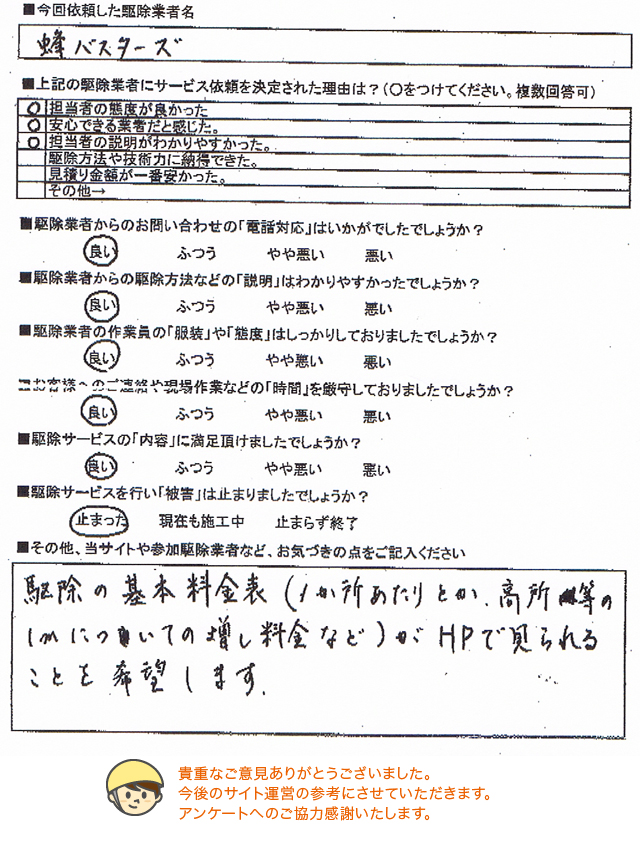 ■今回依頼した駆除業者名
蜂バスターズ
■上記の駆除業者にサービス依頼を決定された理由は？(〇をつけてください。複数回答可)
〇 担当者の態度が良かった
〇 安心できる業者だと感じた。
〇 担当者の説明がわかりやすかった。
駆除方法や技術力に納得できた。
見積り金額が一番安かった。
その他→
■駆除業者からのお問い合わせの「電話対応」はいかがでしたでしょうか？
良い ふつう やや悪い 悪い
■駆除業者からの駆除方法などの「説明」はわかりやすかったでしょうか？
良い ふつう やや悪い 悪い
■駆除業者の作業員の「服装」や「態度」はしっかりしておりましたでしょうか？
良い ふつう やや悪い 悪い
■お客様へのご連絡や現場作業などの「時間」を厳守しておりましたでしょうか？
良い ふつう やや悪い 悪い
■駆除サービスの「内容」に満足頂けましたでしょうか？
良い ふつう やや悪い 悪い
■駆除サービスを行い「被害」は止まりましたでしょうか？
止まった 現在も施工中 止まらず終了
■その他、当サイトや参加駆除業者など、お気づきの点をご記入ください
駆除の基本料金表(1か所あたりとか、高所等の
1mについての増し料金など)がHPで見られる
ことを希望します。
貴重なご意見ありがとうございました。
今後のサイト運営の参考にさせていただきます。
アンケートへのご協力感謝いたします。